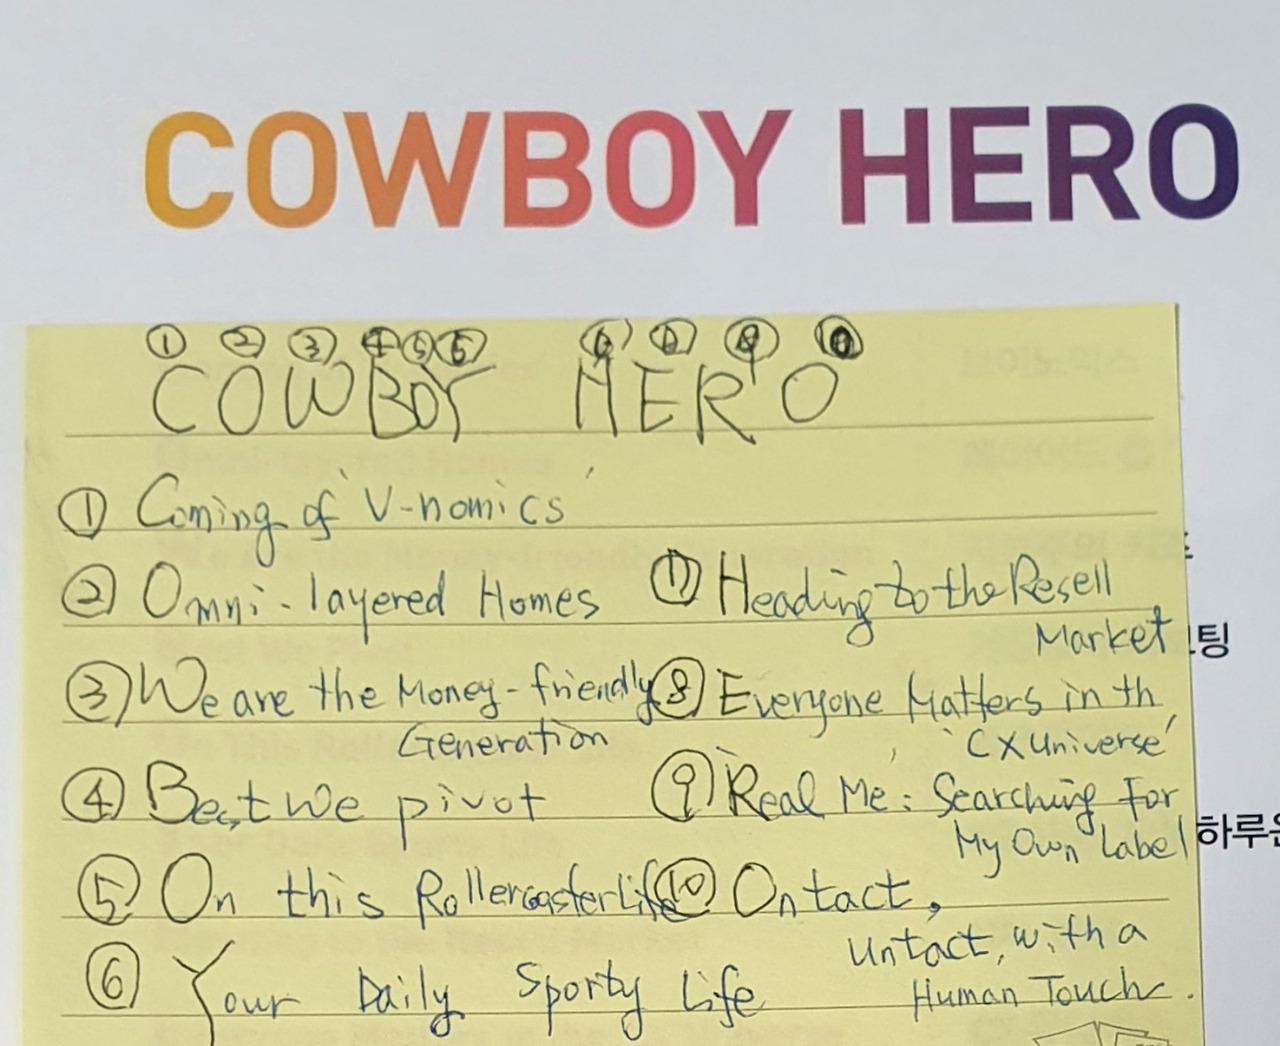 COWBOY HERO
① ② ③ ④ ⑤ ⑥
COWBOY HERO
① Coming of 'V-nomics'
② Omni-layered Homes
③ We are the Money-friendly
Generation
④ Best we pivot
⑤ On this Rollercoaster Life
⑥ Your Daily Sporty Life
Heading to the Resell
Market
⑧ Everyone Matters in th
'CX Universe'
⑨ 'Real Me': Searching For
My Own Label
⑩ Ontact,
Untact, with a
Human Touch.
팅
하루